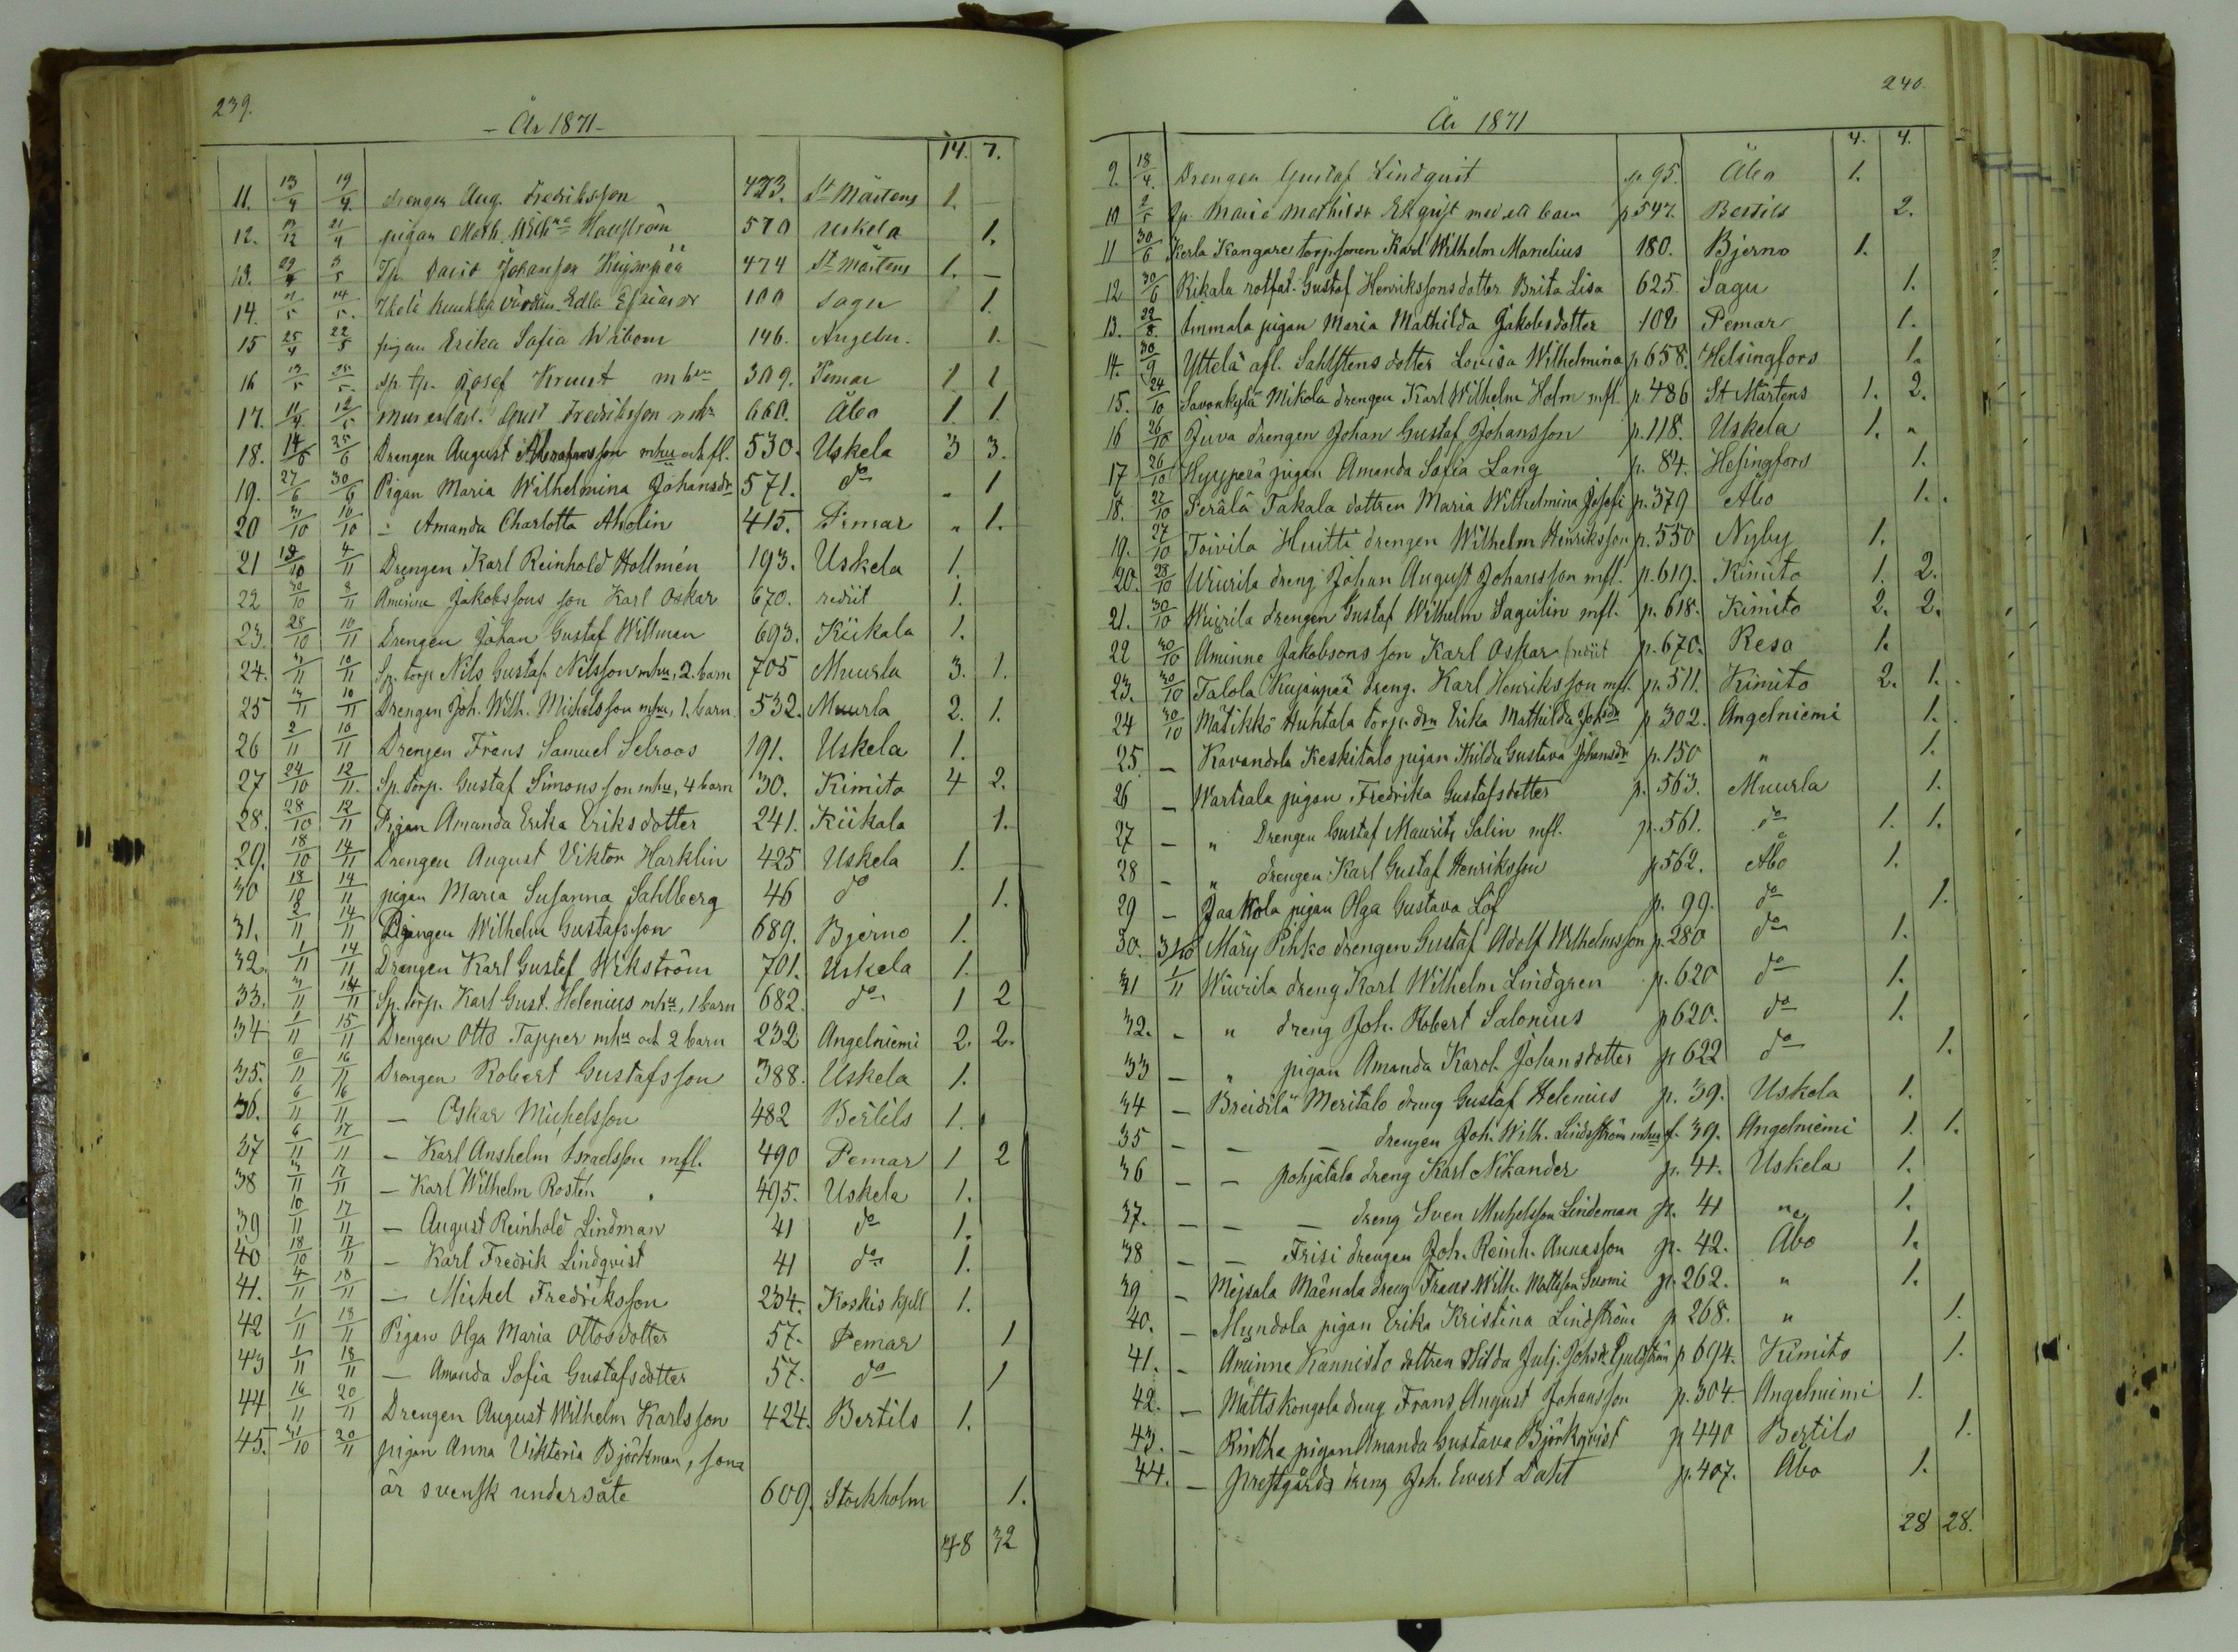 239.
- År 1871 -
14. 7.
11. 13/4 19/4 drengen Aug. Fredriksson 423. St Mårtens 1.
12. 21/4 pigan Math. Wilhna 570 Uskela 1.
13. 29/4 3/5 Tp. David Johansson Kujanpää 474 St Mårtens 1. –
14. 14/5 Edla 100 Sagu 1.
15 25/4 22/5 pigan Erika Sofia Wibom 146. Angeln. 1.
16 13/5 25/5. sp. tp. Josef Kruut m hu 309. Pemar 1 1
17. 11/4. 12/5 Gust Fredriksson mhu 660. Åbo 1. 1.
18. 14/6 25/6 Drengen August Abrahamsson mhu och fl. 530. Uskela 3 3.
19. 27/6 30/6 Pigan Maria Wilhelmina Johansdr 571. do „ 1
20 3/10 10/10 – Amanda Charlotta Aholin 415. Pemar „ 1.
21 19/10 4/11 Drengen Karl Reinhold Hollmén 193. Uskela 1.
22 30/10 8/11 Åminne Jakobssons son Karl Oskar 670. rediit 1.
23. 28/10 10/11 Drengen Johan Gustaf Willman 693. Kiikala 1.
24. 3/11 10/11 Sp. torp Nils Gustaf Nilsson mhu, 2. barn 705 Muurla 3. 1.
25 3/11 10/11 Drengen Joh. Wilh. Michelsson mhu, 1. barn 532. Muurla 2. 1.
26 2/11 10/11 Drengen Frans Samuel Selroos 191. Uskela 1.
27 24/10 12/11. Sp. torp. Gustaf Simonsson mhu, 4 barn 30. Kimito 4 2.
28. 28/10 12/11 Pigan Amanda Erika Eriksdotter 241. Kiikala 1.
29. 18/10 14/11 Drengen August Viktor Harklin 425 Uskela 1.
30 18/10 14/11 pigan Maria Susanna Sahlberg 46 do 1.
31. 2/11 14/11 Drängen Wilhelm Gustafsson 689. Bjerno 1.
32. 1/11 14/11 Drengen Karl Gustaf Wikström 701. Uskela 1.
33. 3/11 14/11 Sp. torp. Karl Gust. Helenius mhu, 1 barn 682. do 1 2
34 1/11 15/11 Drengen Otto Tapper mhu och 2 barn 232 Angelniemi 2. 2.
35. 6/11 16/11 Drengen Robert Gustafsson 388. Uskela 1.
36. 6/11 16/11 – Oskar Michelsson 482 Bertils 1.
37 6/11 17/11 – Karl Anshelm Israelsson mfl. 490 Pemar 1 2
38 3/11 17/11 – Karl Wilhelm Rostén 495. Uskela 1.
39 10/11 17/11 – August Reinhold Lindman 41 do 1.
40 18/10 17/11 – Karl Fredrik Lindqvist 41 do 1.
41. 4/11 18/11 – Michel Fredriksson 234. Koskis kpll 1.
42 1/11 18/11 Pigan Olga Maria Ottosdotter 57. Pemar 1
43 1/11 18/11 – Amanda Sofia Gustafsdotter 57. do 1
44 14/11 20/11 Drengen August Wilhelm Karlsson 424. Bertils 1.
45. 31/10 20/11 pigan Anna Viktoria Björkman, som
är svensk undersåte 609. Stockholm 1.
48 32
240.
År 1871
4. 4.
9. 18/4. Drengen Gustaf Lindquist p 95. Åbo 1.
10 2/5 Maria Mathilda Ekqvist med ett barn p 547. Bertils 2.
11 30/6 Kerla Kangare torpsonen Karl Wilhelm Manelius 180. Bjerno 1.
12 30/6 Rikala rotfat. Gustaf Henrikssons dotter Brita Lisa 625. Sagu 1.
13. 22/8. Immala pigan Maria Mathilda Jakobsdotter 102 Pemar 1.
14. 30/9 Yttelä afl. Sahlstens dotter Lovisa Wilhelmina p 658. Helsingfors 1.
15. 24/10 Savonkylä Mikola drengen Karl Wilhelm Holm mfl. p. 486 St Mårtens 1. 2.
16 26/10 Juva drengen Johan Gustaf Johansson p. 118. Uskela 1. „
17 26/10 Hyyperä pigan Amanda Sofia Lang p. 84. Helsingfors 1.
18. 27/10 Perälä Takala dottren Maria Wilhelmina Josefi p. 379 Åbo 1.
19. 27/10 Toivila Huitti drengen Wilhelm Henriksson p. 550 Nyby 1.
20. 28/10 Wiurila dreng Johan August Johansson mfl. p. 619. Kimito 1. 2.
21. 30/10 Wiurila drengen Gustaf Wilhelm Sagulin mfl. p. 618. Kimito 2. 2.
22 30/10 Åminne Jakobsons son Karl Oskar rediit p. 670. Reso 1.
23. 30/10 Talola Kujanpää dreng. Karl Henriksson mfl. p. 511. Kimito 2. 1.
24 30/10 Mätikkö Huhtala torp. drn Erika Mathilda Johsdr p 302. Angelniemi 1.
25. – Kavandola Keskitalo pigan Hilda Gustava Johansdr p. 150 „ 1.
26 – Wartsala pigan Fredrika Gustafsdotter p. 563. Muurla 1.
27 – „ Drengen Gustaf Maurits Salin mfl. p. 561. do 1. 1.
28 – „ drengen Karl Gustaf Henriksson p 562. Åbo 1.
29 – Jaakola pigan Olga Gustava Löf p. 99. do 1.
30. 31/10 Märy Pihko drengen Gustaf Adolf Wilhelmsson p. 280 do 1.
31 1/11 Wiurila dreng Karl Wilhelm Lindgren p. 620 do 1.
32. – „ dreng Joh. Robert Salonius p 620. do 1.
33 – „ pigan Amanda Karol. Johansdotter p 622 do 1.
34 – Breidilä Meritalo dreng Gustaf Helenius p. 39. Uskela 1.
35 – – – drengen Joh. Wilh. Lindström mhu p. 39. Angelniemi 1. 1.
36 – – pohjatalo dreng Karl Nikander p. 41. Uskela 1.
37. – – – dreng Sven Michelsson Lindeman p. 41 „ 1.
38 – – Frisi drengen Joh. Reinh. Annasson p. 42. Åbo 1.
39 – Mejsala Mäenala dreng Frans Wilh. Mattsson Suomi p. 262. „ 1.
40. – Mundola pigan Erika Kristina Lindström p 268. „ 1.
41. – Åminne Kannisto dottren Hilda Julj. Johsdr p 694. Kimito 1.
42. – Mätts Kongola dreng Frans August Johansson p. 304. Angelniemi 1.
43. – Rintha pigan Amanda Gustava Björkqvist p 440 Bertils 1.
44. – prestgårds dreng Joh. Evert Dahl p. 407. Åbo 1.
28 28.